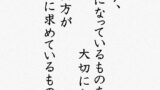 、
になっているものも
大切に
方が
に求めているもの